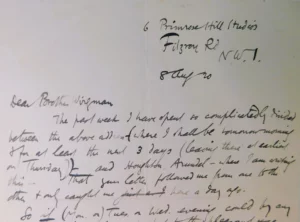 6 Primrose Hill Studios
Fitzroy Rd
N.W.1.
8 Aug 20
Dear Brother Wongman
The past week I have spent so complicatedly divided
between the above address (where I shall be tomorrow morning
& for at least the next 3 days (leaving there at earliest
on Thursday)) and Houghton Arundel - where I am writing
this. That your letter followed me from one to the
other & only caught me a day ago.
So if on Tues or Wed. evening could by any